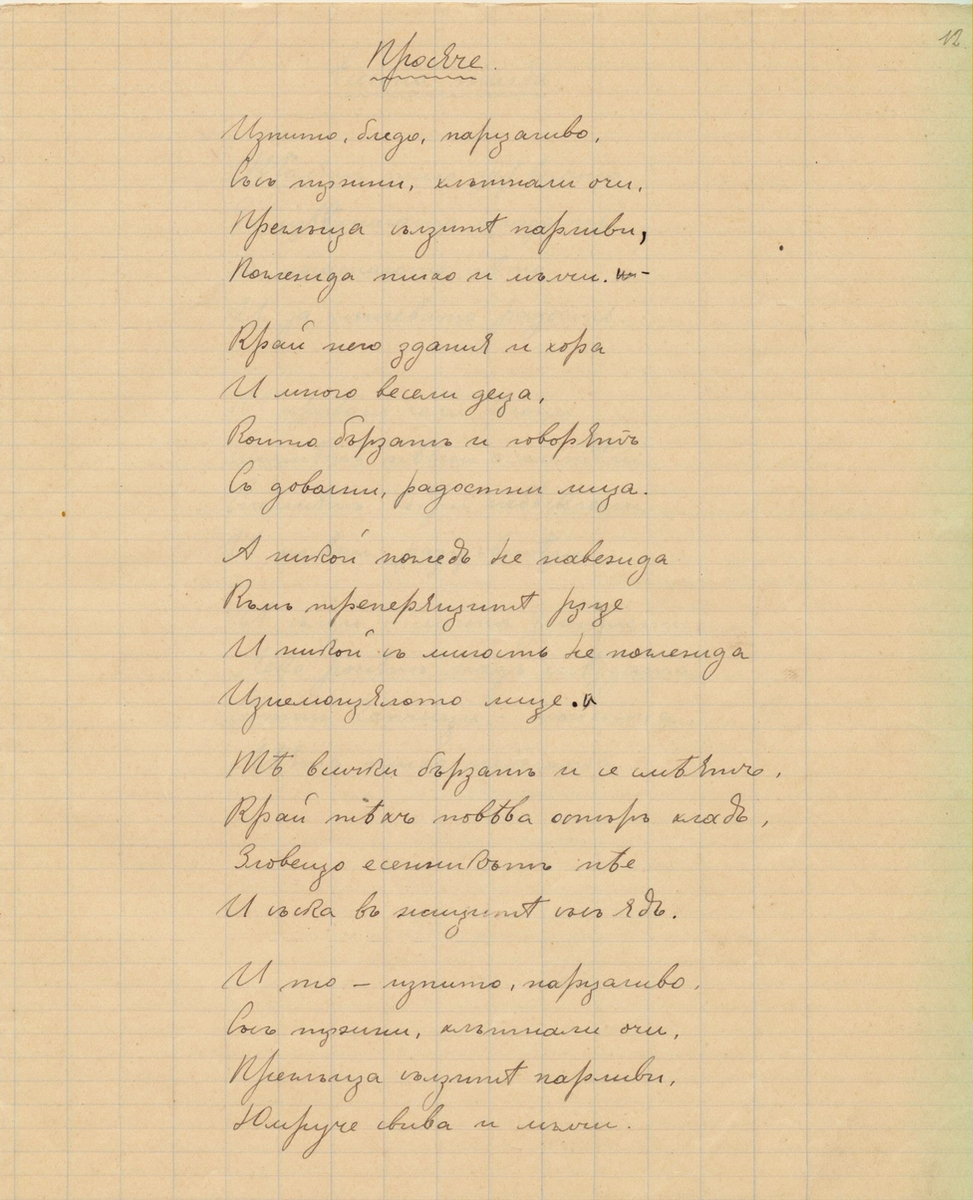 12
Просяче.
Изпито, бледо, парцаливо,
Със тѫжни, хлътнали очи,
Преглъща сълзитѣ парливи,
Поглежда тихо и мълчи.
Край него здания и хора
И много весели деца,
Които бързатъ и говорятъ
Съ доволни, радостни лица.
А никой погледъ не навежда
Къмъ треперящитѣ рѫце
И никой съ милость не поглежда
Изнемощялото лице.
Тѣ всички бързатъ и се смѣятъ,
Край тѣхъ повѣва остъръ хладъ,
Зловещо есенникътъ пѣе
И съска въ жицитѣ със ядъ.
И то – изпито, парцаливо,
Със тѫжни, хлътнали очи,
Преглъща сълзитѣ парливи,
Юмруче свива и мълчи.